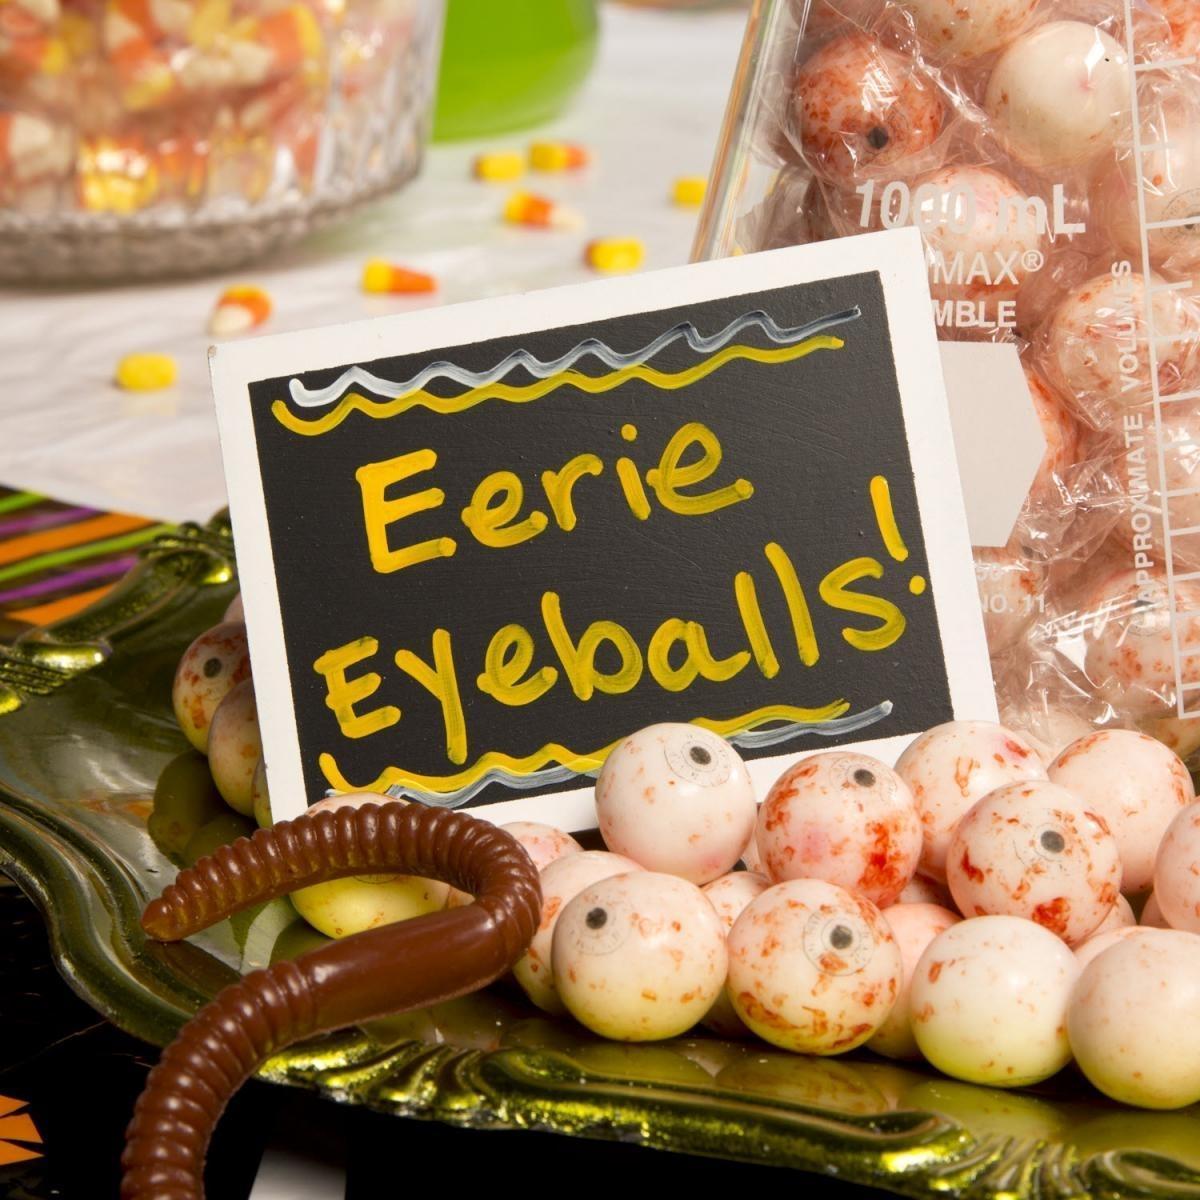 1000 mL
MAX®
MBLE
NO. 11
APPROXIMATE VOLUMES
Eerie
Eyeballs!